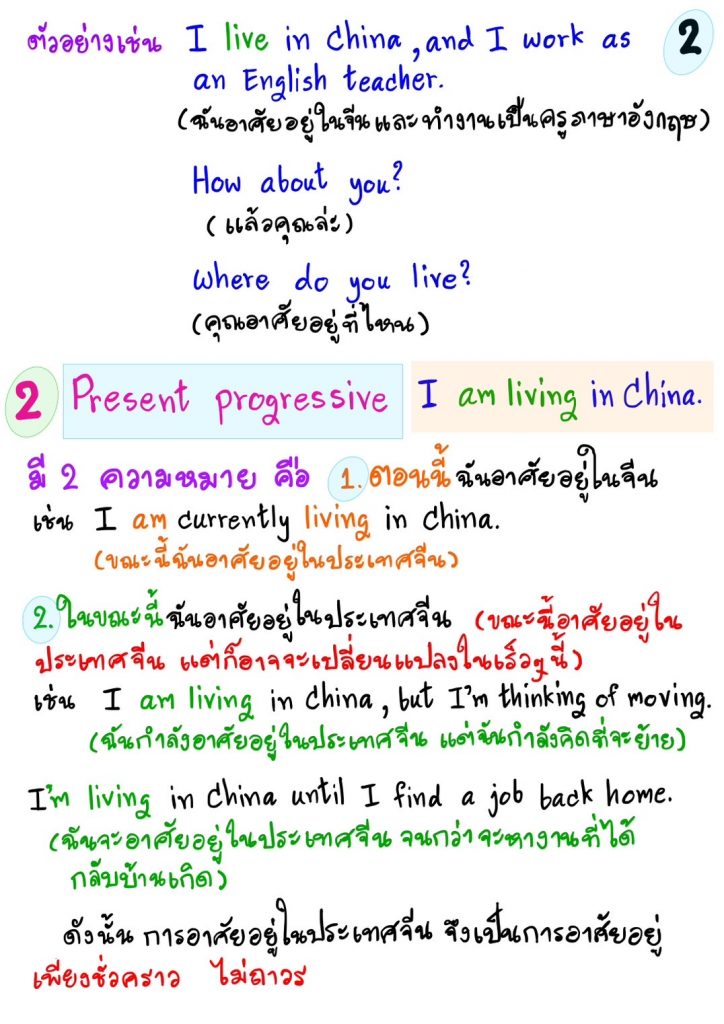 ตัวอย่างเช่น I live in China, and I work as 2
an English teacher.
(ฉันอาศัยอยู่ในจีนและทำงานเป็นครูภาษาอังกฤษ)
How about you?
(แล้วคุณล่ะ)
Where do you live?
(คุณอาศัยอยู่ที่ไหน)
2 Present progressive I am living in China.
มี 2 ความหมาย คือ 1. ตอนนี้ฉันอาศัยอยู่ในจีน
เช่น I am currently living in China.
(ขณะนี้ฉันอาศัยอยู่ในประเทศจีน)
2. ในขณะนี้ฉันอาศัยอยู่ในประเทศจีน (ขณะนี้อาศัยอยู่ใน
ประเทศจีน แต่ก็อาจจะเปลี่ยนแปลงในเร็วๆนี้)
เช่น I am living in China, but I'm thinking of moving.
(ฉันกำลังอาศัยอยู่ในประเทศจีน แต่ฉันกำลังคิดที่จะย้าย)
I'm living in China until I find a job back home.
(ฉันจะอาศัยอยู่ในประเทศจีน จนกว่าจะหางานที่ได้
กลับบ้านเกิด)
ดังนั้น การอาศัยอยู่ในประเทศจีน จึงเป็นการอาศัยอยู่
เพียงชั่วคราว ไม่ถาวร